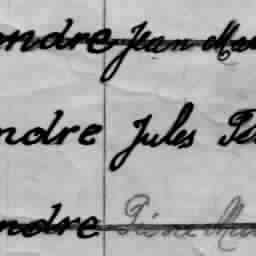 ndre Jean Ma
ndre Jules Pe
ndre Pierre M